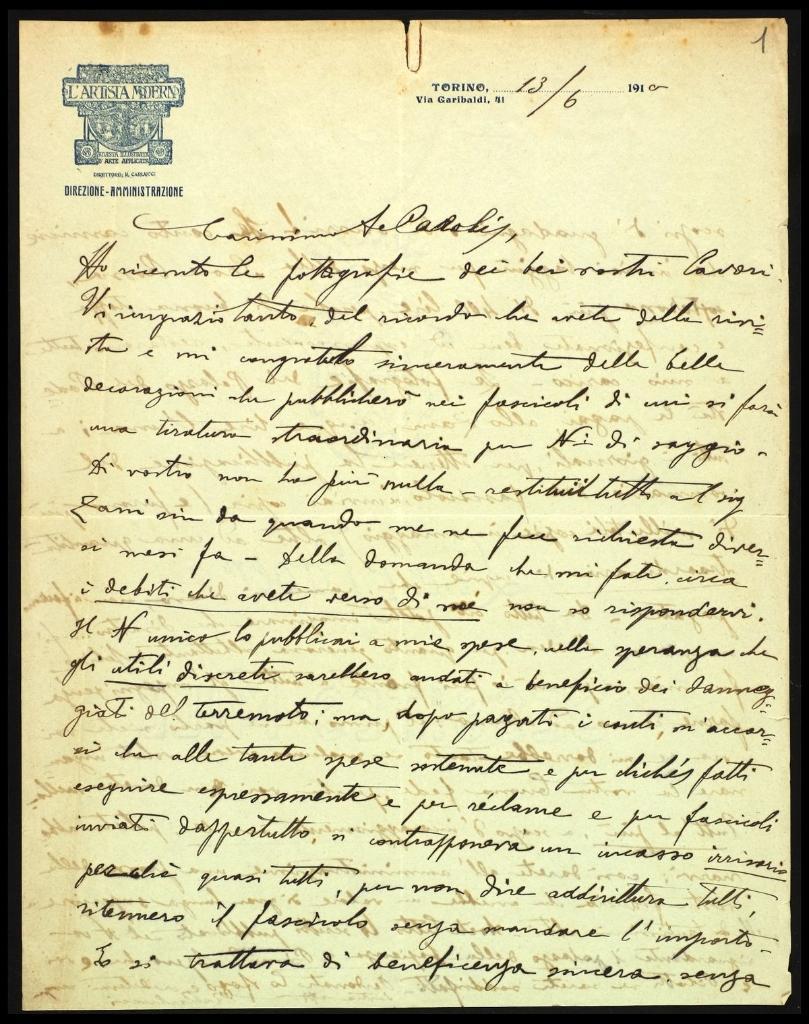 1
L'ARTISTA MODERNO
RIVISTA ILLUSTRATA
D'ARTE APPLICATA
DIRETTORE: R. CARLUCCI
DIREZIONE-AMMINISTRAZIONE
TORINO, 13/6 1910
Via Garibaldi, 41
Carissimo De Carolis,
Ho ricevuto le fotografie dei bei vostri lavori.
Vi ringrazio tanto del ricordo che avete della rivi=
sta e mi congratulo sinceramente delle belle
decorazioni che pubblicherò nei fascicoli di cui si farà
una tiratura straordinaria per Ni di saggio -
Di vostro non ho più nulla - restituii tutto al sig
Zani sin da quando me ne fece richiesta diver=
si mesi fa - Della domanda che mi fate circa
i debiti che avete verso di me non so rispondervi.
Il N unico lo pubblicai a mie spese, nella speranza che
gli utili discreti sarebbero andati a beneficio dei danneg=
giati del terremoto; ma, dopo pagati i conti, m'accor=
si che alle tante spese sostenute e per clichés fatti
eseguire espressamente e per réclame e per fascicoli
inviati dappertutto, si contrapponeva un incasso irrisorio
perchè quasi tutti, per non dire addirittura tutti,
ritennero il fascicolo senza mandare l'importo -
E si trattava di beneficenza sincera, senza